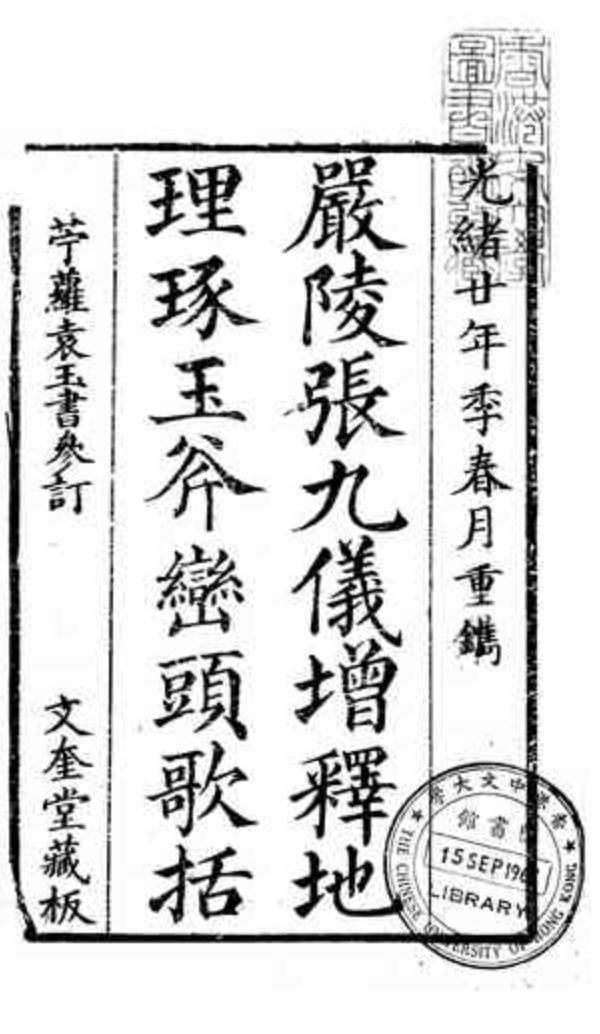 光緒廿年季春月重鐫
嚴陵張九儀增釋地
理琢玉斧巒頭歌括
苧蘿袁玉書參訂
文奎堂藏板
香港中文大學
圖書館
15 SEP
LIBRARY
THE CHINESE UNIVERSITY OF HONG KONG